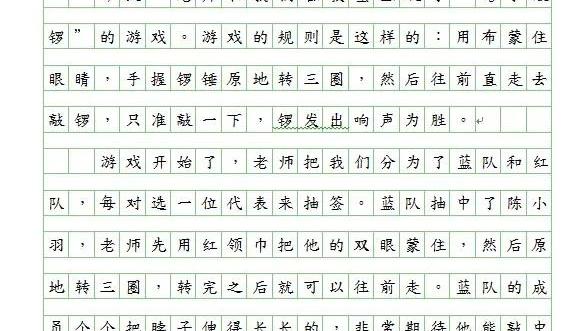 锣”的游戏。游戏的规则是这样的：用布蒙住
眼睛，手握锣锤原地转三圈，然后往前直走去
敲锣，只准敲一下，锣发出响声为胜。
游戏开始了，老师把我们分为了蓝队和红
队，每对选一位代表来抽签。蓝队抽中了陈小
羽，老师先用红领巾把他的双眼蒙住，然后原
地转三圈，转完之后就可以往前走。蓝队的成
员个个把脖子伸得长长的，非常期待他能敲中